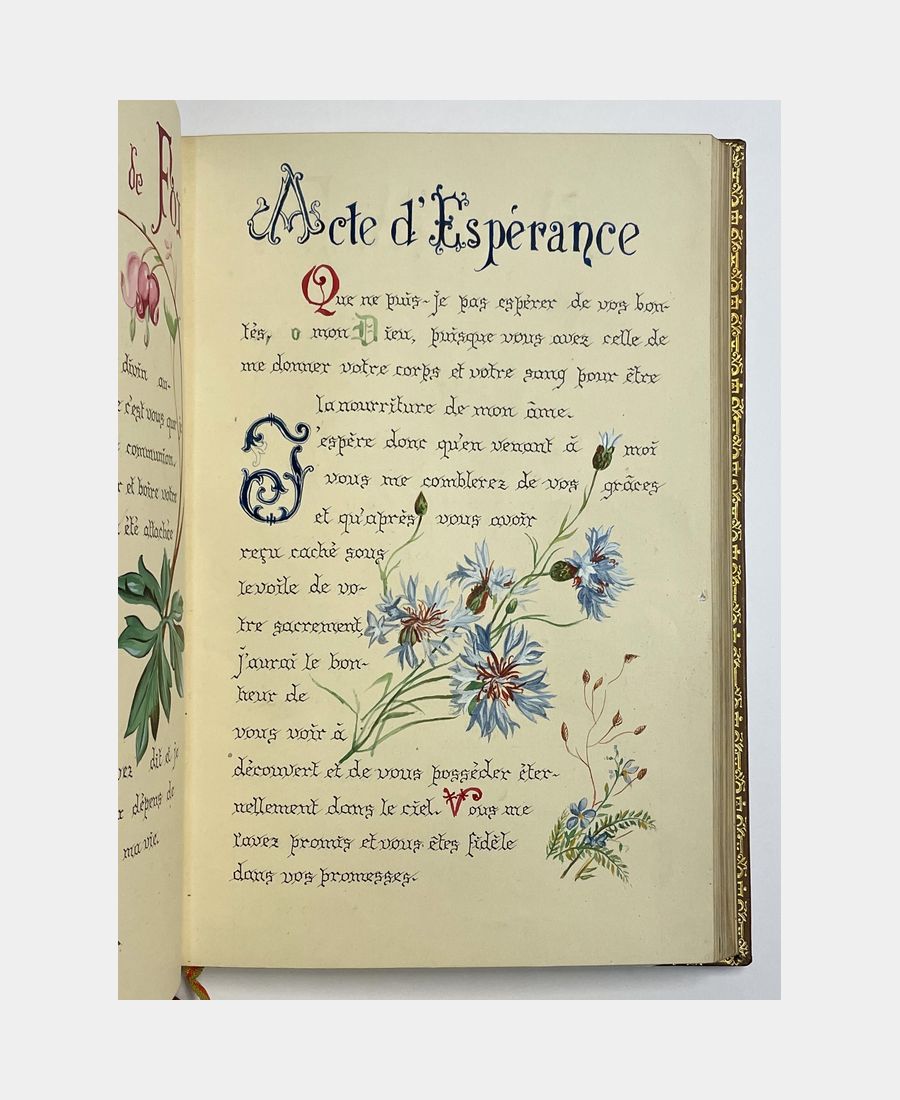 de
divin an-
c'est vous que
communion.
et boire votre
été attachée
dit et je
dépens de
ma vie.
Acte d'Espérance
Que ne puis-je pas espérer de vos bon-
tés, o mon Dieu, puisque vous avez celle de
me donner votre corps et votre sang pour être
la nourriture de mon âme.
J'espère donc qu'en venant à moi
vous me comblerez de vos grâces
et qu'après vous avoir
reçu caché sous
le voile de vo-
tre sacrement,
j'aurai le bon-
heur de
vous voir à
découvert et de vous posséder éter-
nellement dans le ciel. Vous me
l'avez promis et vous êtes fidèle
dans vos promesses.